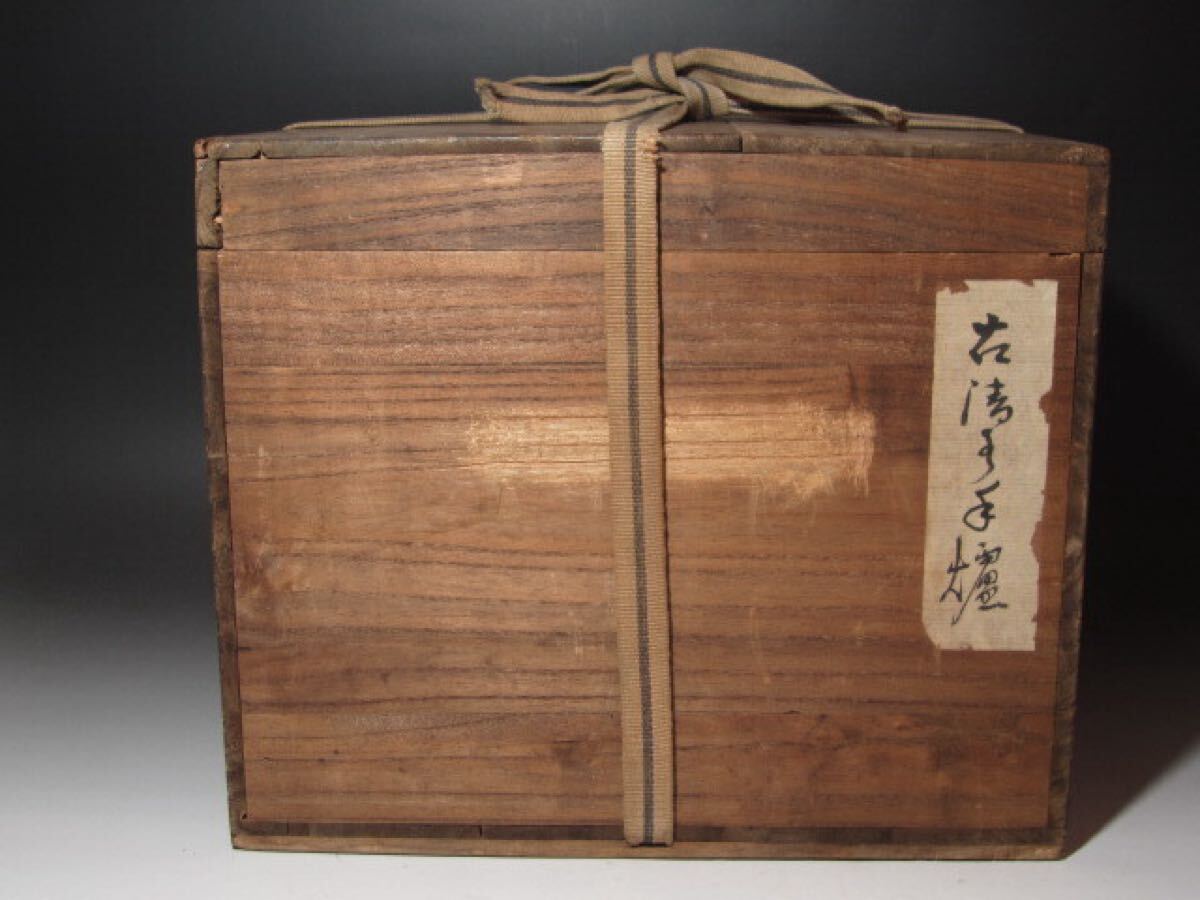 古清水手爐